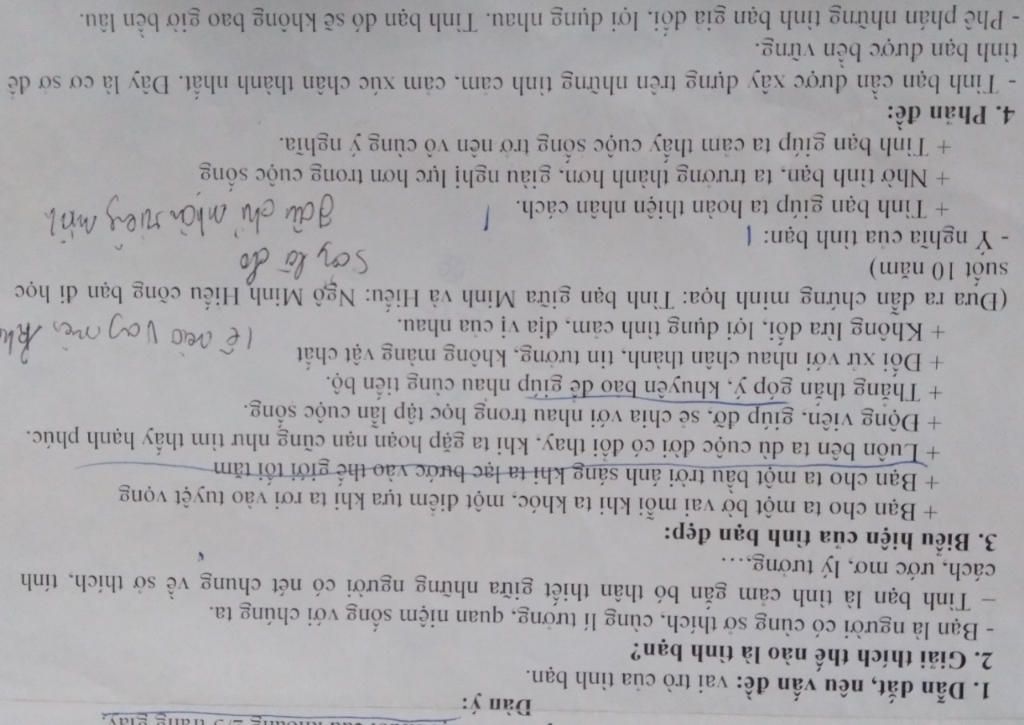 Dàn ý:
1. Dẫn dắt, nêu vấn đề: vai trò của tình bạn.
2. Giải thích thế nào là tình bạn?
- Bạn là người có cùng sở thích, cùng lí tưởng, quan niệm sống với chúng ta.
– Tình bạn là tình cảm gắn bó thân thiết giữa những người có nét chung về sở thích, tính
cách, ước mơ, lý tưởng,...
3. Biểu hiện của tình bạn đẹp:
+ Bạn cho ta một bờ vai mỗi khi ta khóc, một điểm tựa khi ta rơi vào tuyệt vọng
+ Bạn cho ta một bầu trời ánh sáng khi ta lạc bước vào thế giới tối tăm
+ Luôn bên ta dù cuộc đời có đổi thay, khi ta gặp hoạn nạn cũng như tìm thấy hạnh phúc.
+ Động viên, giúp đỡ, sẻ chia với nhau trong học tập lẫn cuộc sống.
+ Thẳng thắn góp ý, khuyên bảo để giúp nhau cùng tiến bộ.
+ Đối xử với nhau chân thành, tin tưởng, không màng vật chất
+ Không lừa dối, lợi dụng tình cảm, địa vị của nhau.
(Đưa ra dẫn chứng minh họa: Tình bạn giữa Minh và Hiếu: Ngô Minh Hiếu cõng bạn đi học
suốt 10 năm)
- Ý nghĩa của tình bạn:
+ Tình bạn giúp ta hoàn thiện nhân cách.
+ Nhờ tình bạn, ta trưởng thành hơn, giàu nghị lực hơn trong cuộc sống
+ Tình bạn giúp ta cảm thấy cuộc sống trở nên vô cùng ý nghĩa.
4. Phản đề:
- Tình bạn cần được xây dựng trên những tình cảm, cảm xúc chân thành nhất. Đây là cơ sở để
tình bạn được bền vững.
- Phê phán những tình bạn giả dối, lợi dụng nhau. Tình bạn đó sẽ không bao giờ bền lâu.